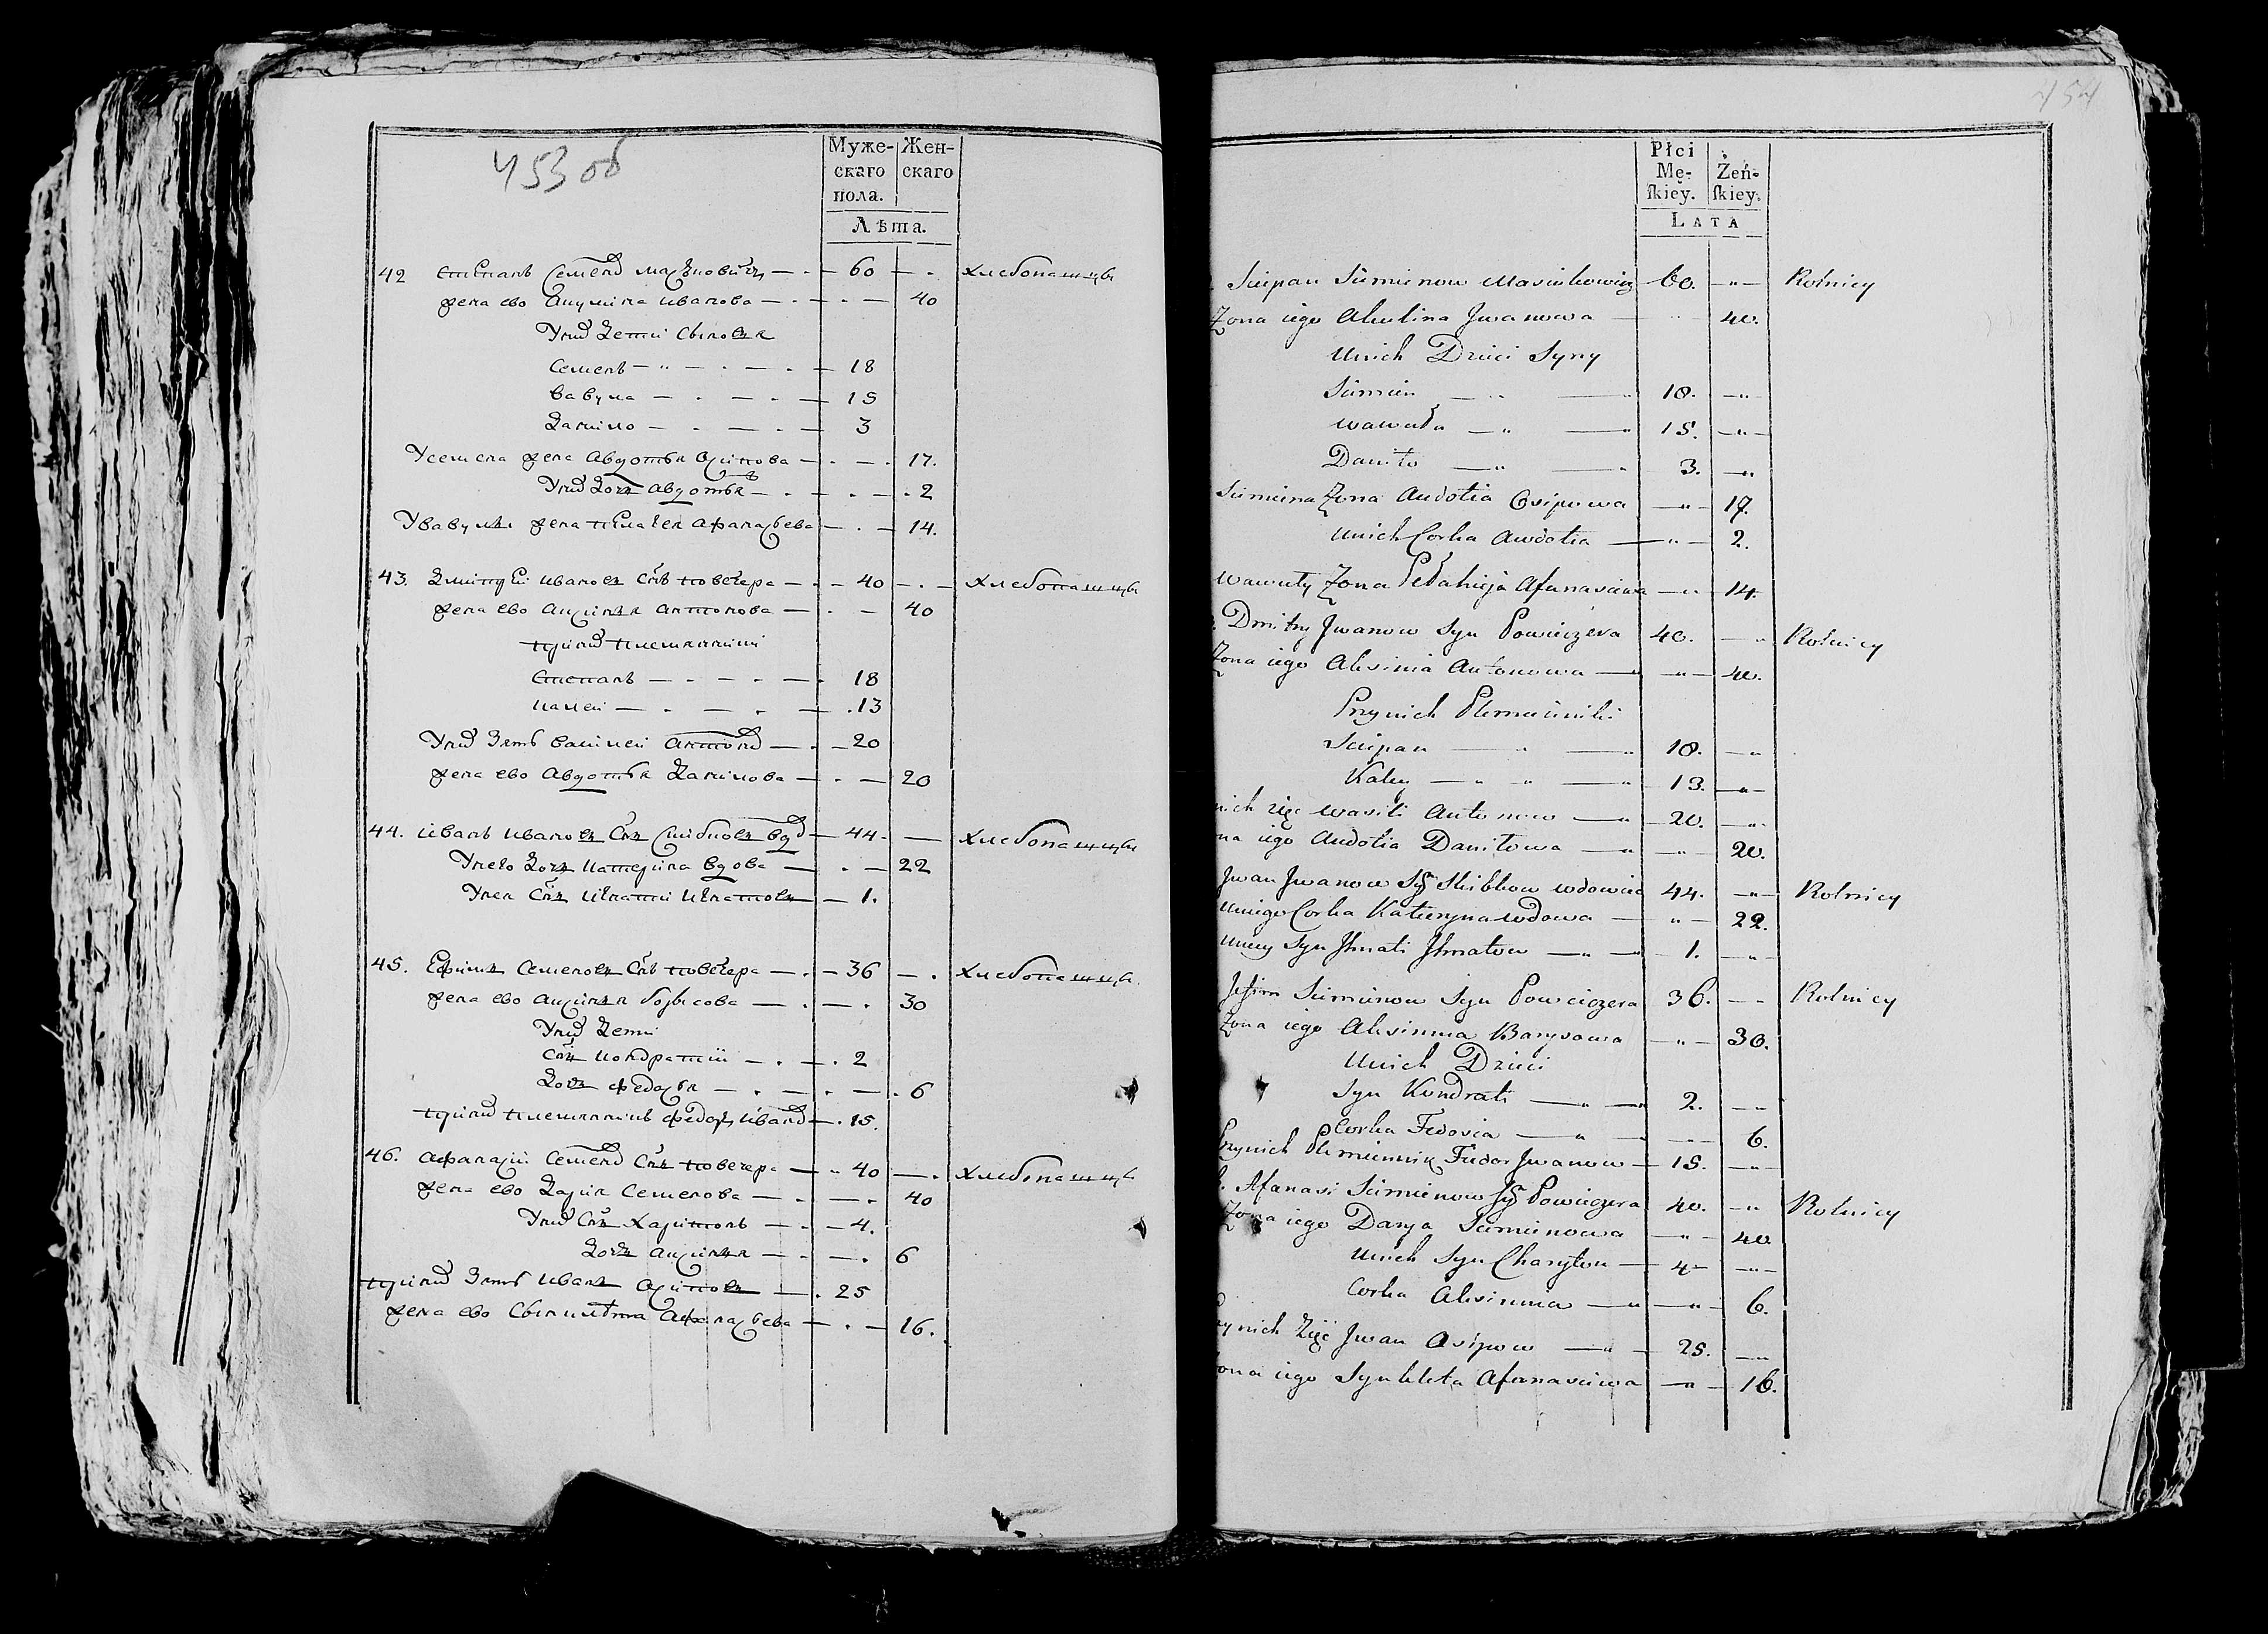 453 об
Муже-
скаго
пола.
Жен-
скаго
Лѣта.
42 Степанъ Семенов Масюковичъ — 60 — хлебопашцы
жена ево Акулина Иванова — 40
У них дети сыновья
Семенъ — 18
Вавула — 15
Данило — 3
У Семена жена Авдотья Осипова — 17.
У них дочь Авдотья — 2
У Вавулы жена Пелагея Афанасьева — 14.
43. Дмитрей Иванов сынъ Повечера — 40 — хлебопашцы
жена ево Аксинья Антонова — 40
при них племянники
Степанъ — 18
Калей — 13
У них зять Василей Антонов — 20
жена ево Авдотья Данилова — 20
44. Иванъ Иванов сынъ Скибков вдов — 44 — хлебопашцы
У него дочь Катерина вдова — 22
У нея сынъ Игнатий Игнатов — 1.
45. Ефимъ Семенов сынъ Повечера — 36 — хлебопашцы
жена ево Аксинья Борысова — 30
У них дети
сынъ Кондратий — 2
дочь Федосья — 6
при них племянникъ Федоръ Иванов — 15.
46. Афанасий Семенов сынъ Повечера — 40 — хлебопашцы
жена ево Дарья Семенова — 40
У них сынъ Харитонъ — 4.
дочь Аксинья — 6
при них зять Иванъ Осипов — 25
жена ево Сынклета Афанасьева — 16.
454
Płci
Mę-
skiey.
Żeń-
skiey.
LATA
Sciepan Siemionow Masiukowicz 60. — Rolnicy
Żona iego Akulina Jwanowa — 40.
Unich Dzieci Syny
Siemien — 18. —
Wawuła — 15. —
Daniło — 3. —
Siemiena Żona Audotia Osipowa — 17.
Unich Corka Awdotia — 2.
Wawuły Żona Pełahieja Afanasiewa — 14.
Dmitry Jwanow Syn Powieczera 40. — Rolnicy
Żona iego Aksinia Antonowa — 40.
Przynich Plemienniki
Sciepan — 18. —
Kaley — 13. —
nich zięć Wasili Antonow — 20. —
na iego Audotia Daniłowa — 20.
Jwan Jwanow Syn Skibkow wdowiec 44. — Rolnicy
Uniego Corka Kateryna wdowa — 22.
Uniey Syn Jhnati Jhnatow — 1. —
Jefim Siemionow Syn Powieczera 36. — Rolnicy
Żona iego Aksinnia Barysowa — 30.
Unich Dzieci
Syn Kondrati — 2. —
Corka Fedosia — 6.
Przynich Plemiennik Fiedor Jwanow — 15. —
Afanasi Siemionow Syn Powieczera 40. — Rolnicy
Żona iego Darya Siemionowa — 40
Unich Syn Charyton — 4 —
Corka Aksinnia — 6.
ynich Zięć Jwan Osipow — 25. —
ona iego Synkleta Afanasiewa — 16.